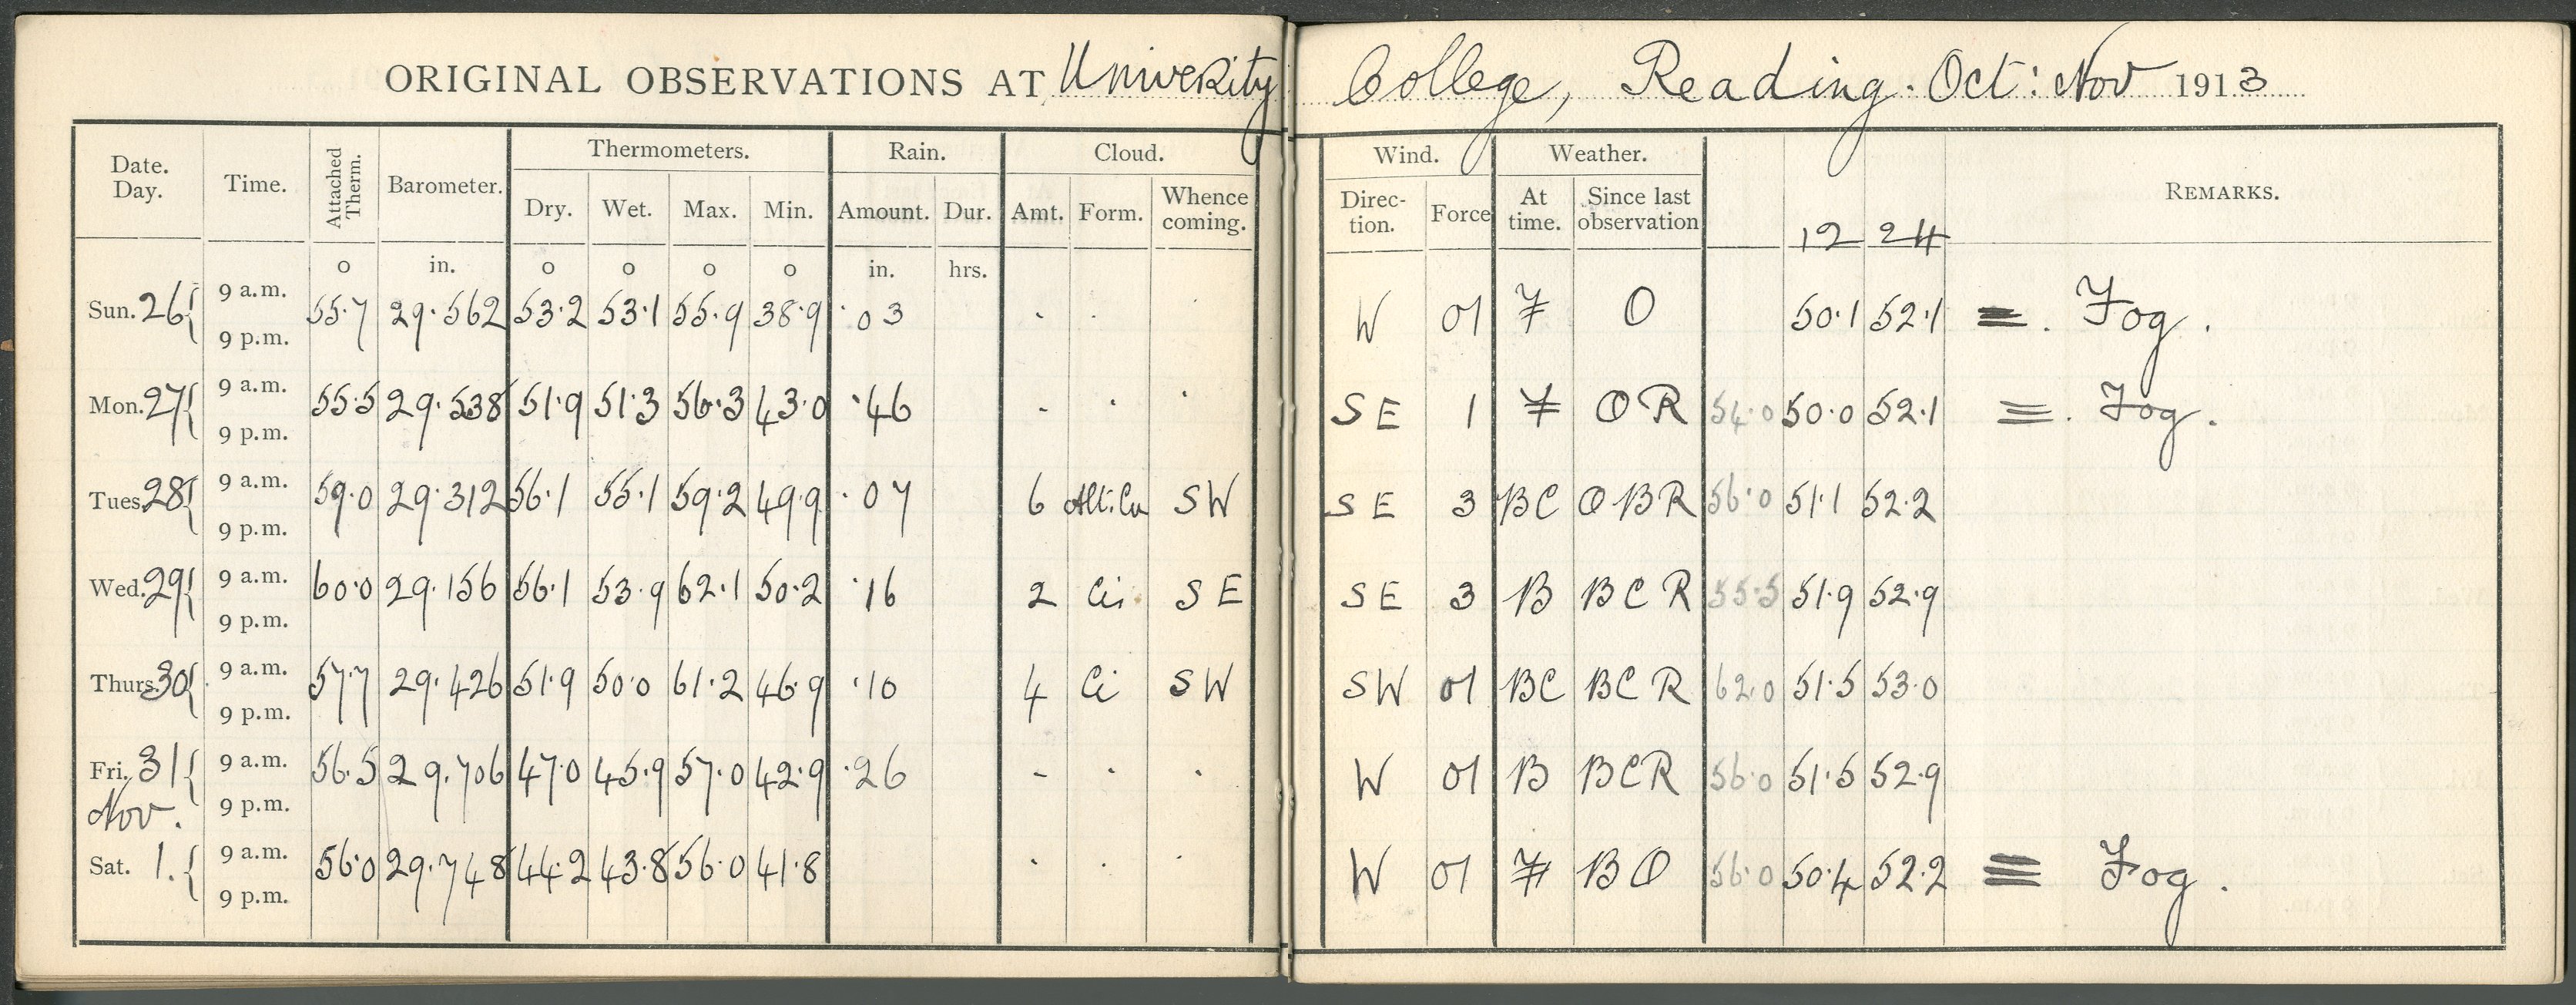 ORIGINAL OBSERVATIONS AT Univerity College, Reading. Oct: Nov 1913
Date. Day. Time. Attached Therm. Barometer. Thermometers. Rain. Cloud. Wind. Weather. REMARKS.
Dry. Wet. Max. Min. Amount. Dur. Amt. Form. Whence coming. Direction. Force At time. Since last observation 12 24
o in. o o o o in. hrs.
Sun. 26 9 a.m. 55.7 29.562 53.2 53.1 55.9 38.9 .03 . . . W 01 F O 50.1 52.1 ≡. Fog.
9 p.m.
Mon. 27 9 a.m. 55.5 29.538 51.9 51.3 56.3 43.0 .46 . . . SE 1 F OR 54.0 50.0 52.1 ≡. Fog.
9 p.m.
Tues. 28 9 a.m. 59.0 29.312 56.1 55.1 59.2 49.9 .07 6 Alt.Cu SW SE 3 BC OBR 56.0 51.1 52.2
9 p.m.
Wed. 29 9 a.m. 60.0 29.156 56.1 53.9 62.1 50.2 .16 2 Ci SE SE 3 B BCR 55.5 51.9 52.9
9 p.m.
Thurs. 30 9 a.m. 57.7 29.426 51.9 50.0 61.2 46.9 .10 4 Ci SW SW 01 BC BCR 62.0 51.5 53.0
9 p.m.
Fri. 31 9 a.m. 56.5 29.706 47.0 45.9 57.0 42.9 .26 - . . W 01 B BCR 56.0 51.5 52.9
Nov. 9 p.m.
Sat. 1. 9 a.m. 56.0 29.748 44.2 43.8 56.0 41.8 . . . W 01 F BO 56.0 50.4 52.2 ≡ Fog.
9 p.m.